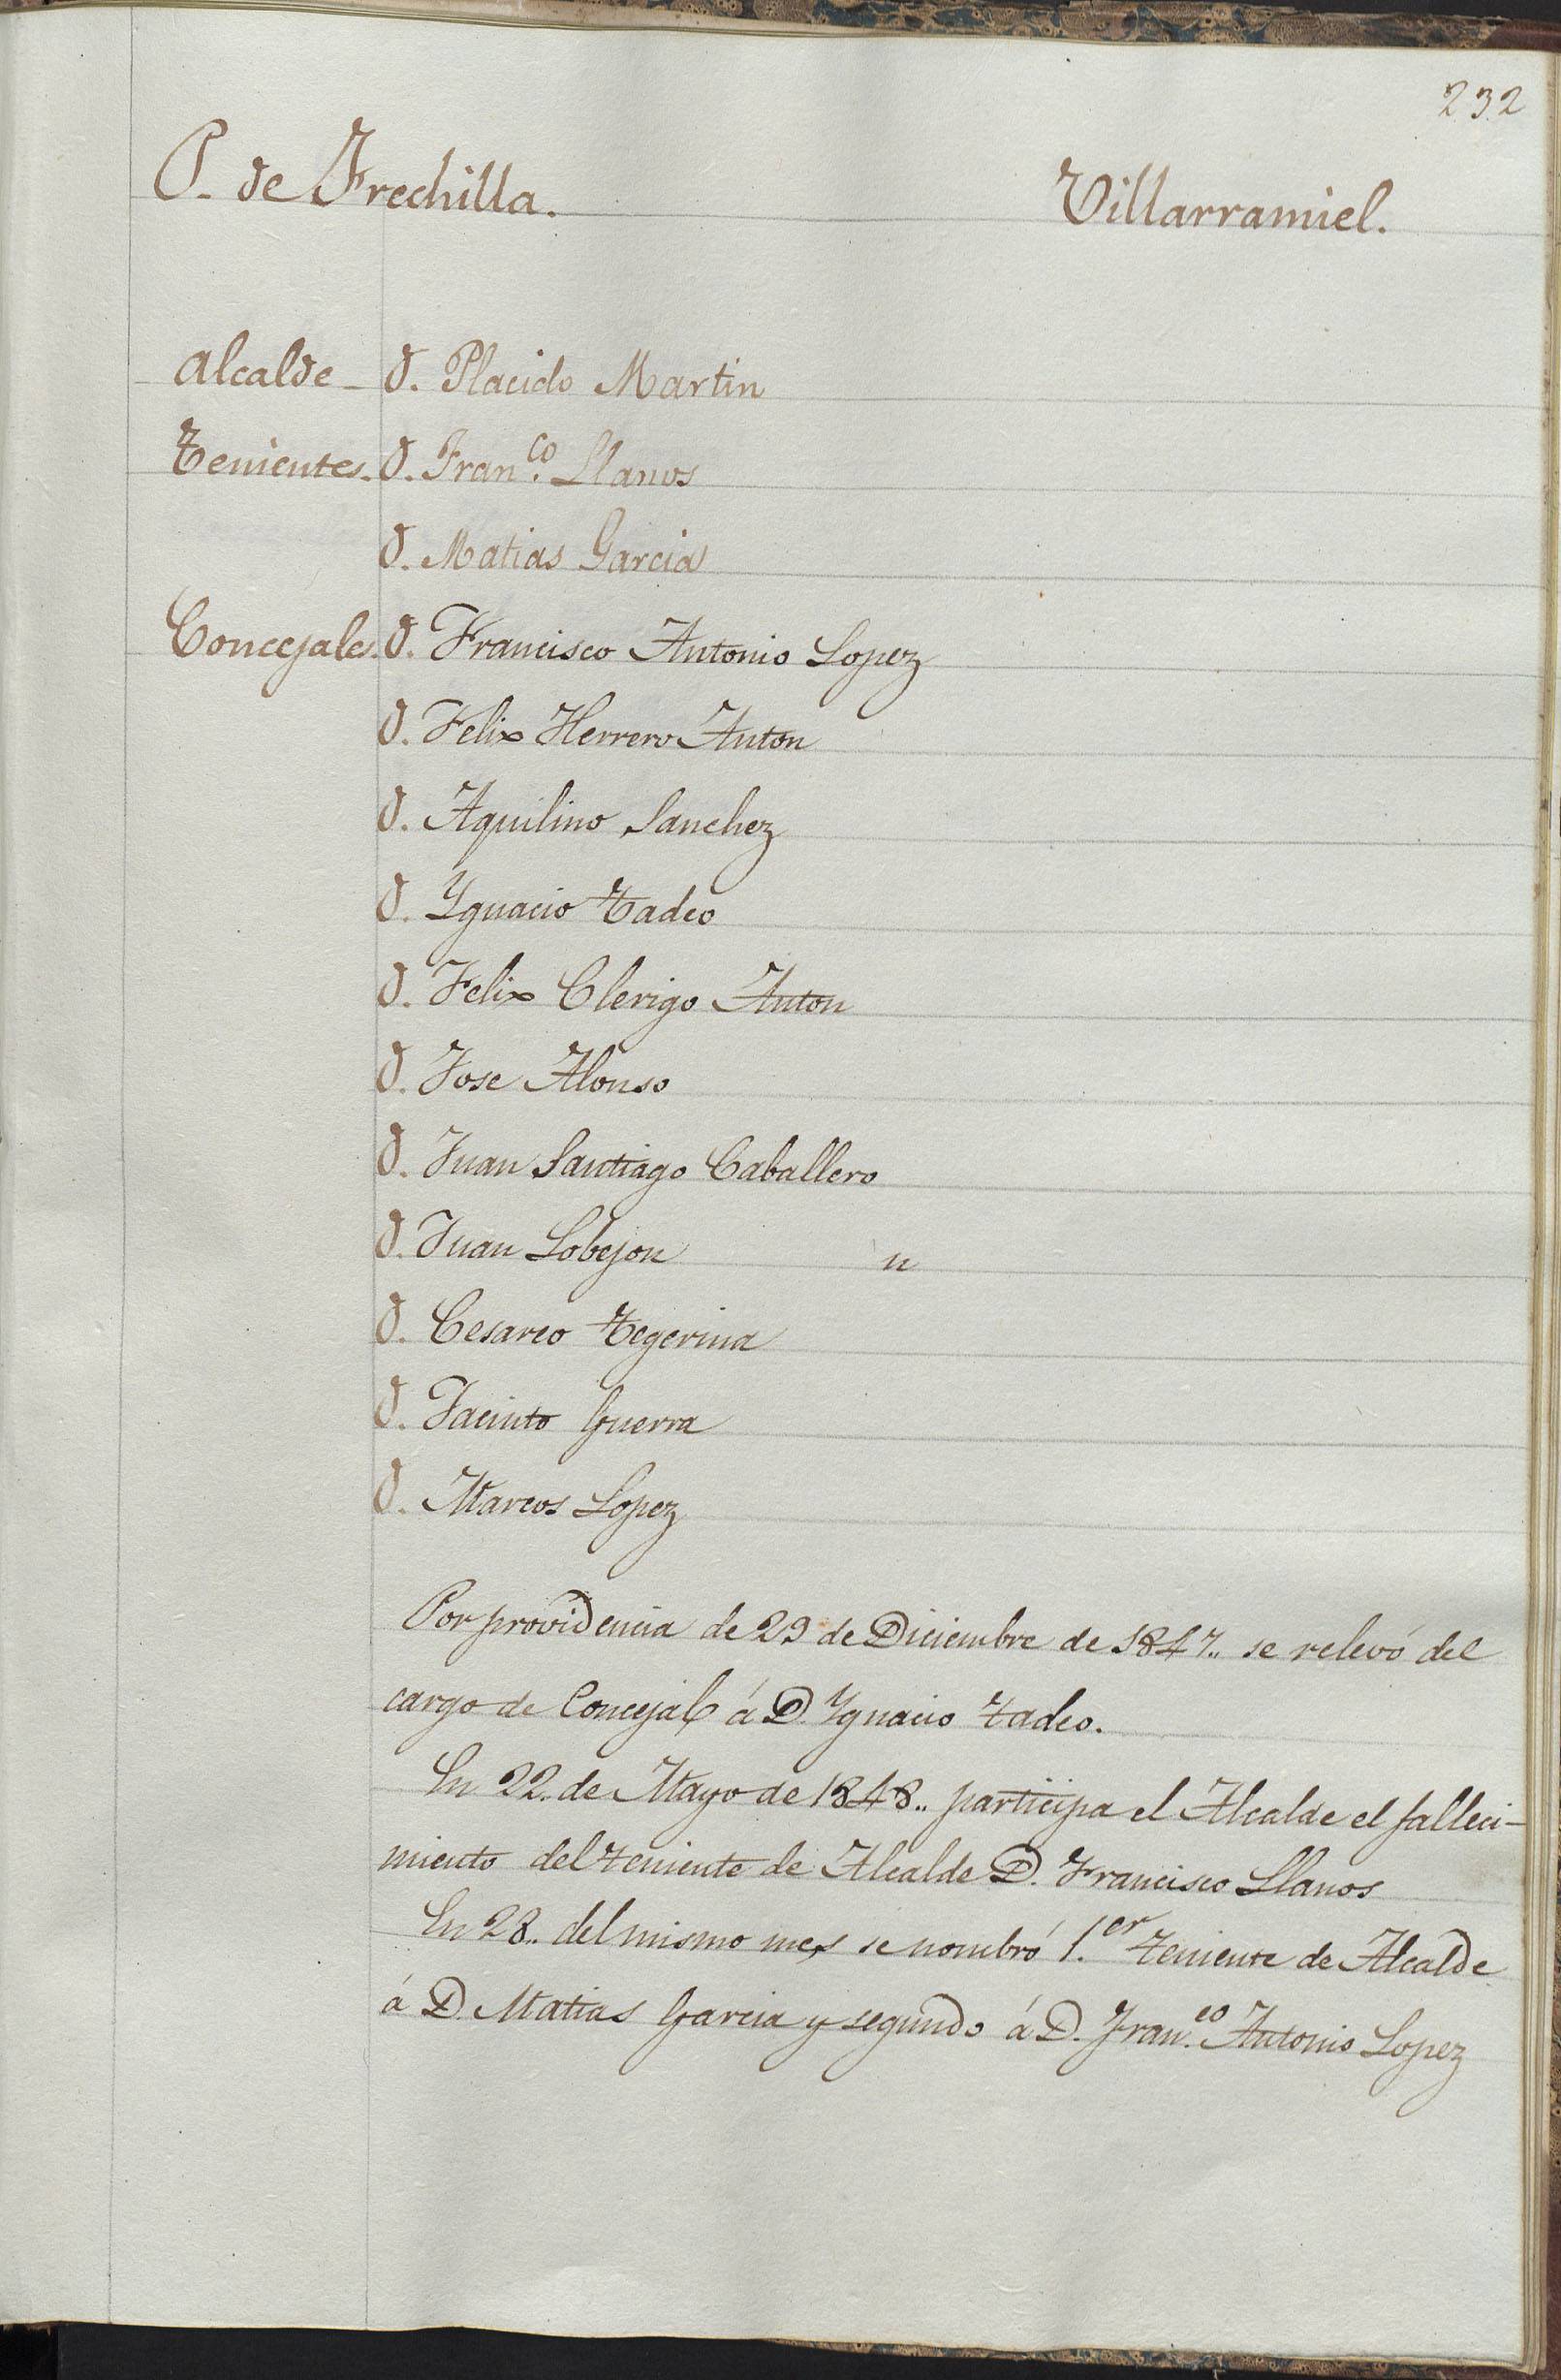 232
P. de Frechilla. Villarramiel.
Alcalde D. Placido Martin
Tenientes. D. Fran.co Llanos
D. Matias Garcia
Concejales. D. Francisco Antonio Lopez
D. Felix Herrero Anton
D. Aquilino Sanchez
D. Ygnacio Tadeo
D. Felix Clerigo Anton
D. Jose Alonso
D. Juan Santiago Caballero
D. Juan Lobejon n
D. Cesareo Tegerina
D. Jacinto Guerra
D. Marcos Lopez
Por providencia de 29 de Diciembre de 1847.. se relevó del
cargo de Concejal á D. Ygnacio Tadeo.
En 22. de Mayo de 1848.. participa el Alcalde el falleci-
miento del teniente de Alcalde D. Francisco Llanos
En 28.. del mismo mes se nombró 1.er teniente de Alcalde
á D. Matias Garcia y segundo á D. Fran.co Antonio Lopez